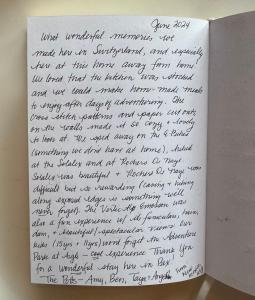 June 2024
What wonderful memories we
made here in Switzerland, and especially
here at this home away from home!
We loved that the kitchen was stocked
and we could make home-made meals
to enjoy after days of adventuring. The
cross stitch patterns and paper cut outs
on the walls made it so cozy + lovely
to look at. We
(something we don't have at home), hiked
at the Solalex and at Rochers de Naye.
Solalex was beautiful + Rochers de Naye was
difficult but so rewarding (
along exposed edges is something we'll
never forget). The Vertic Alp Emosson was
also a fun experience w/ the funiculars, train,
dam, + beautiful + spectacular views. Our
kids (15yrs + 11yrs) won't forget the Adventure
Park at Aigle - cool experience. Thank you
for a wonderful stay here in Bex!
The - Amy, Ben,